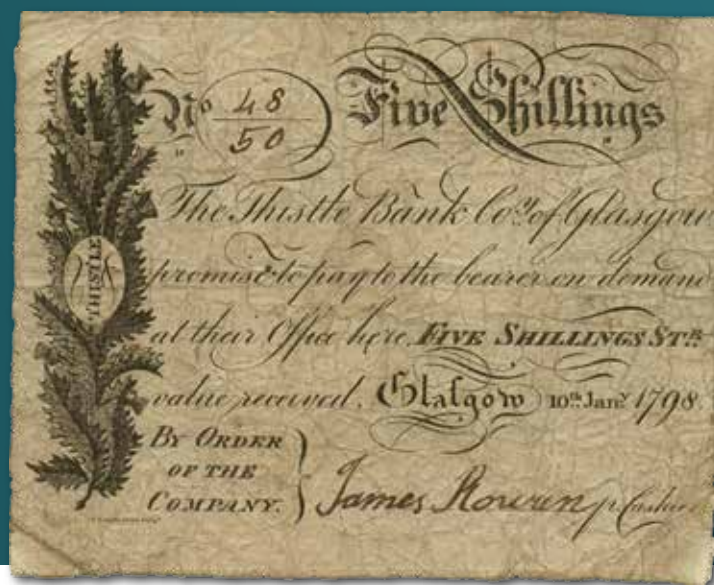 No 48/50 Five Shillings
The Thistle Bank Coy. of Glasgow
promise to pay to the bearer on demand
at their Office here, FIVE SHILLINGS STR.
value received. Glasgow 10th. Jany. 1798.
THISTLE
BY ORDER
OF THE
COMPANY.
James